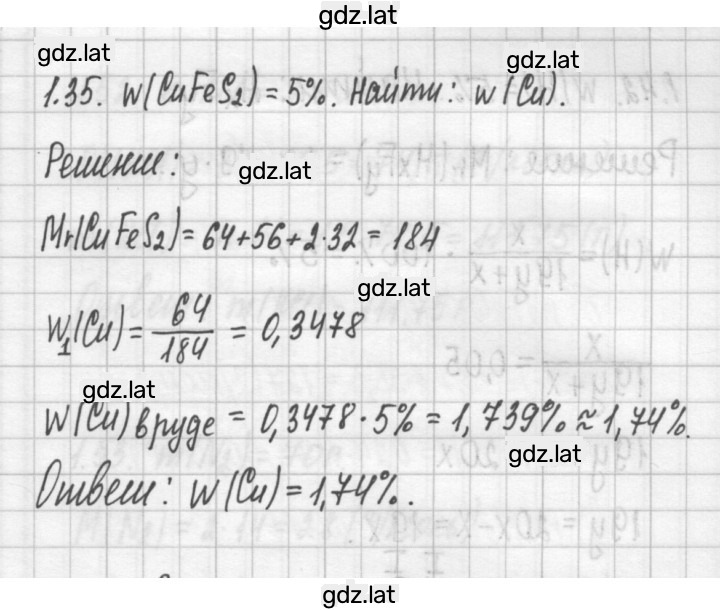 gdz.lat
gdz.lat
gdz.lat
1.35. w(CuFeS₂) = 5%. Найти: w(Cu).
Решение:
gdz.lat
Mr(CuFeS₂) = 64+56+2·32 = 184
gdz.lat
W₁(Cu) = 64/184 = 0,3478
gdz.lat
W(Cu) в руде = 0,3478 · 5% = 1,739% ≈ 1,74%.
gdz.lat
Ответ: w(Cu) = 1,74%.
gdz.lat